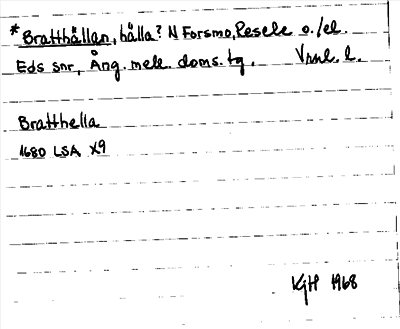 *Bratthällan, hälla? N Forsmo, Resele o./el.
Eds snr, Ång. mell. doms. tg. Vnnl. l.
Bratthella
1680 LSA X9
KjH 1968